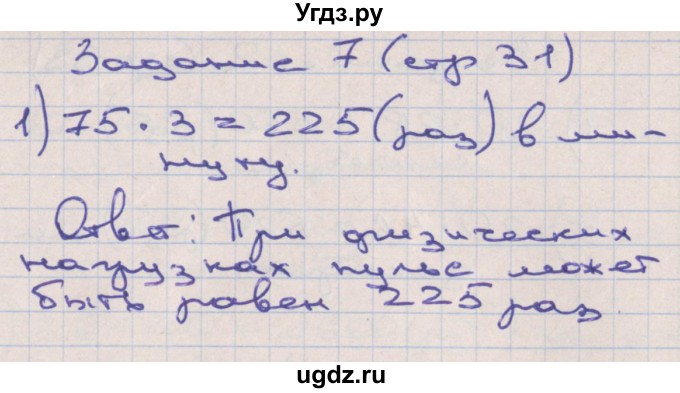 Угдз.ру
Задание 7 (стр 31)
1) 75 · 3 = 225 (раз) в ми-
нуту.
Ответ: При физических
нагрузках пульс может
быть равен 225 раз.
ugdz.ru